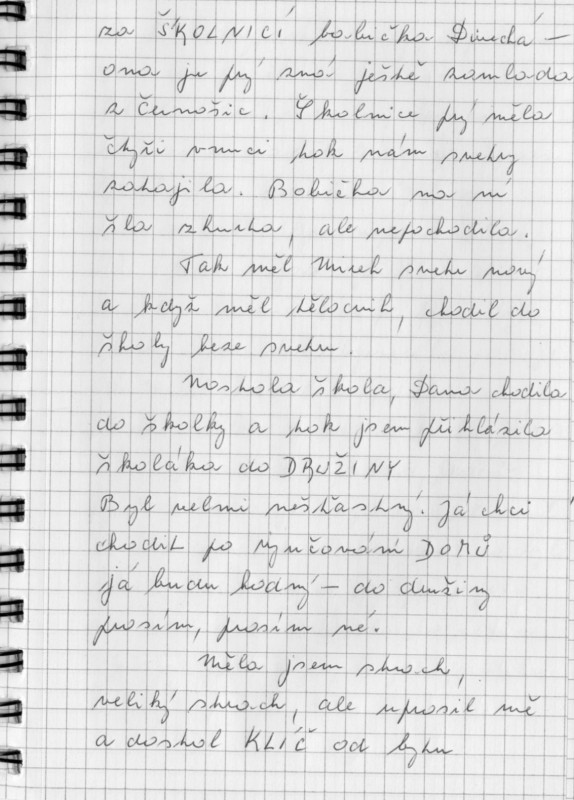 za ŠKOLNICÍ babička Divechá –
ona je prý zná ještě zamlada
z Černošic. Školnice prý měla
čtyři vnuci tak nám svetry
zahajila. Babička na ní
šla zhurta, ale nepochodila.
Tak měl Mirek svetr nový
a když měl tělocvik, chodil do
školy beze svetru.
Nastala škola, Dana chodila
do školky a tak jsem přihlásila
školáka do DRUŽINY
Byl velmi nešťastný. Já chci
chodit po vyučování DOMŮ
já budu hodný – do družiny
prosím, prosím né.
Měla jsem strach,
veliký strach, ale uprosil mě
a dostal KLÍČ od bytu